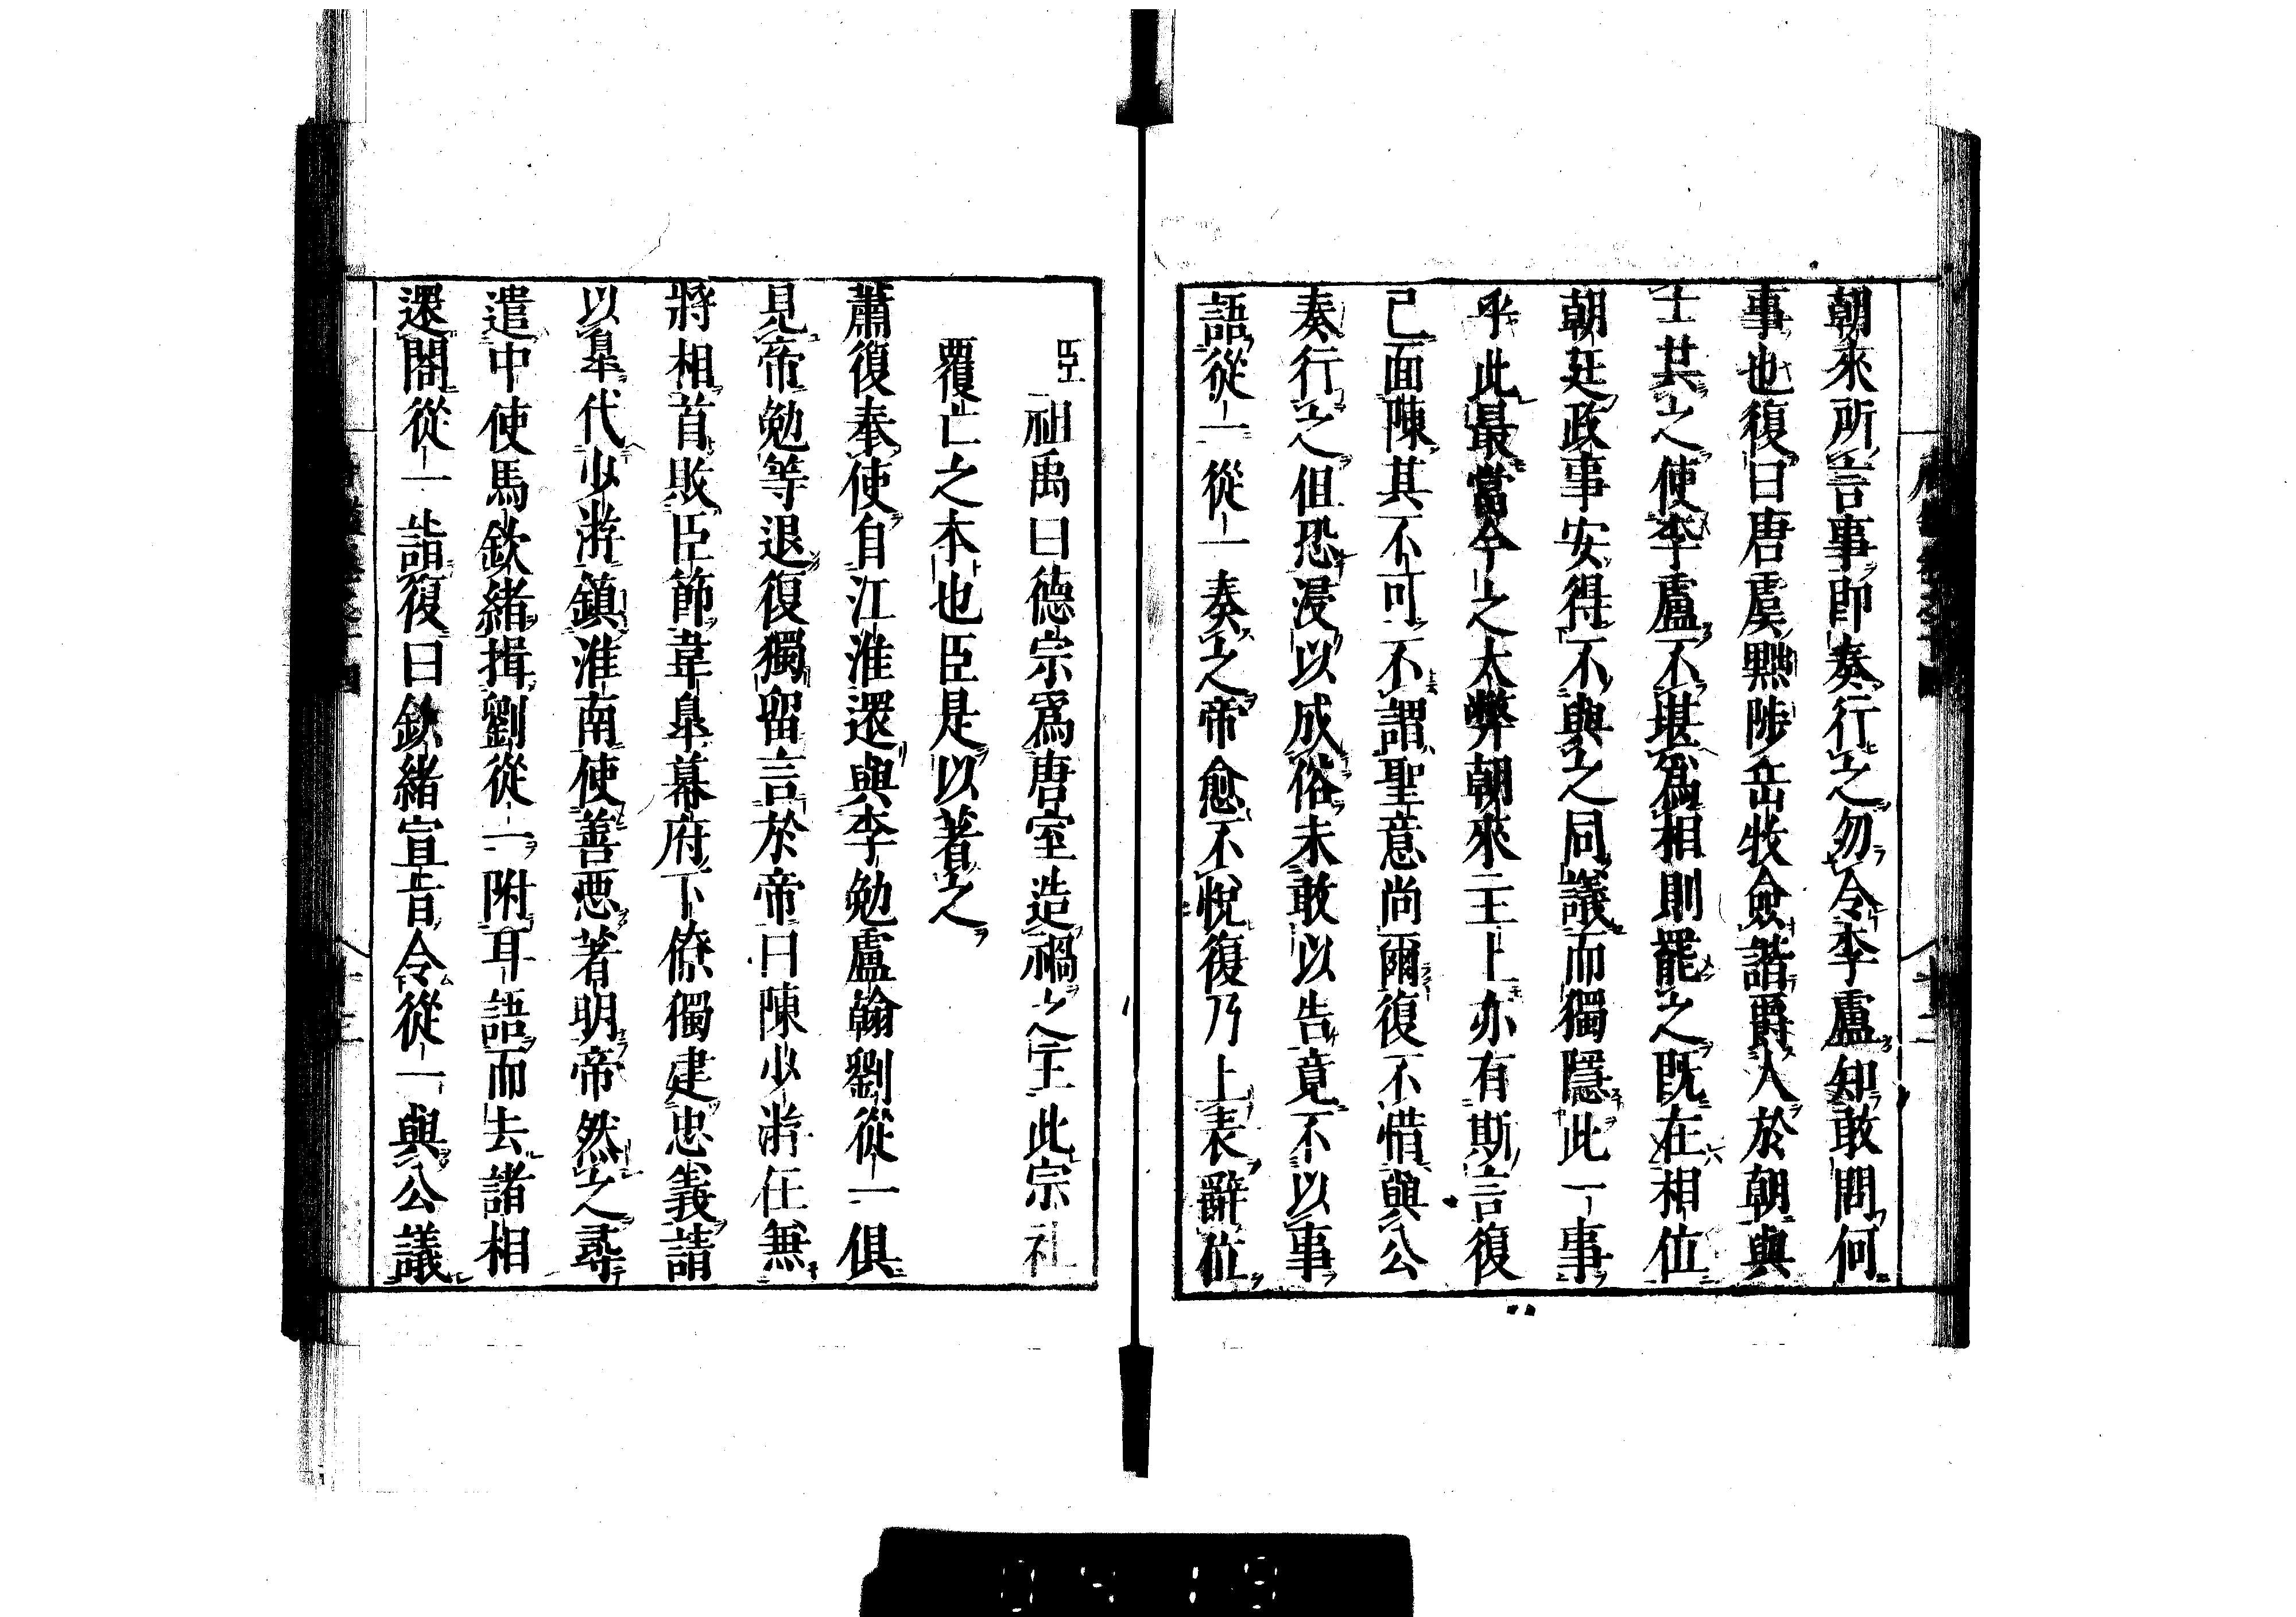 朝來所言事即奏行之勿令李盧知敢問何
事也復曰唐虞黜陟岳牧僉諧爵人於朝與
士共之使李盧不堪為相則罷之既在相位
朝廷政事安得不與之同議而獨隱此一事
乎此最當今之大弊朝來主上亦有斯言復
已面陳其不可不謂聖意尚爾復不惜與公
奏行之但恐浸以成俗未敢以告竟不以事
語從一從一奏之帝愈不悅復乃上表辭位
臣祖禹曰德宗爲唐室造禍之主此宗社
覆亡之本也臣是以著之
蕭復奉使自江淮還與李勉盧翰劉從一俱
見帝勉等退復獨留言於帝曰陳少游任無
將相首敗臣節韋臯幕府下僚獨建忠義請
以臯代少游鎮淮南使善惡著明帝然之尋
遣中使馬欽緒揖劉從一附耳語而去諸相
還閤從一詣復曰欽緒宣旨令從一與公議